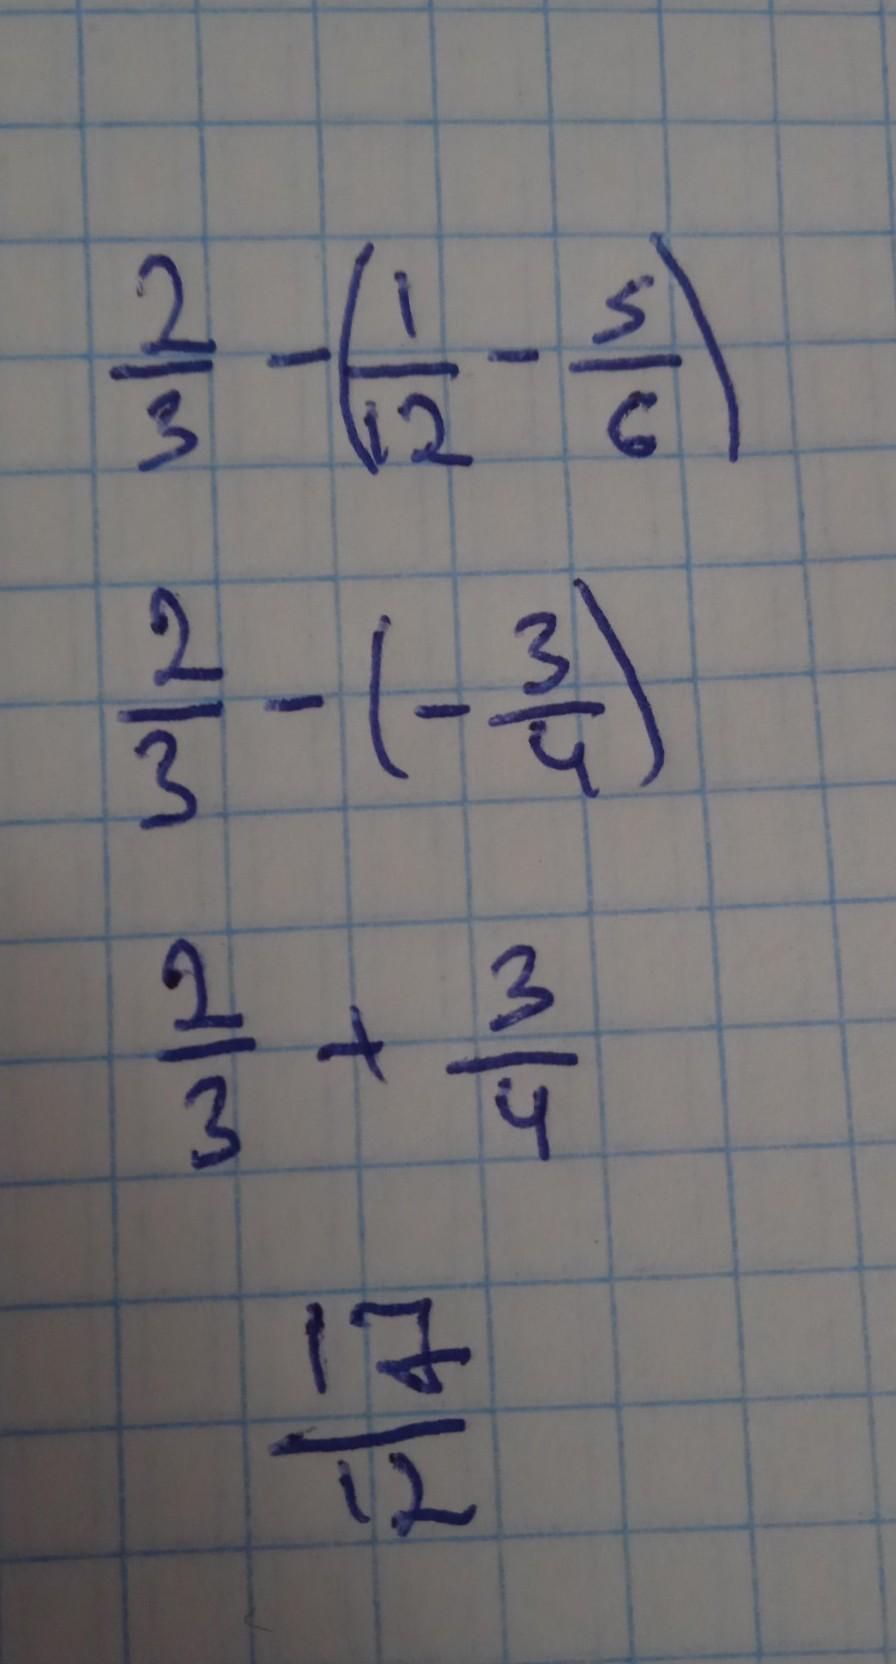 2/3 - (1/12 - 5/6)
2/3 - (- 3/4)
2/3 + 3/4
17/12